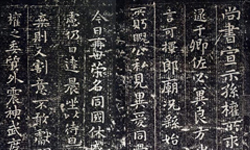 尚書宣示孫權所求
逮于卿佐必冀良方出
言可擇郎廟況繇始
睨公私見異愛同
今日再世榮名同國休慼
慮仍日達晨坐以待旦
棄則又割意不敢獻
權之委質外震神武